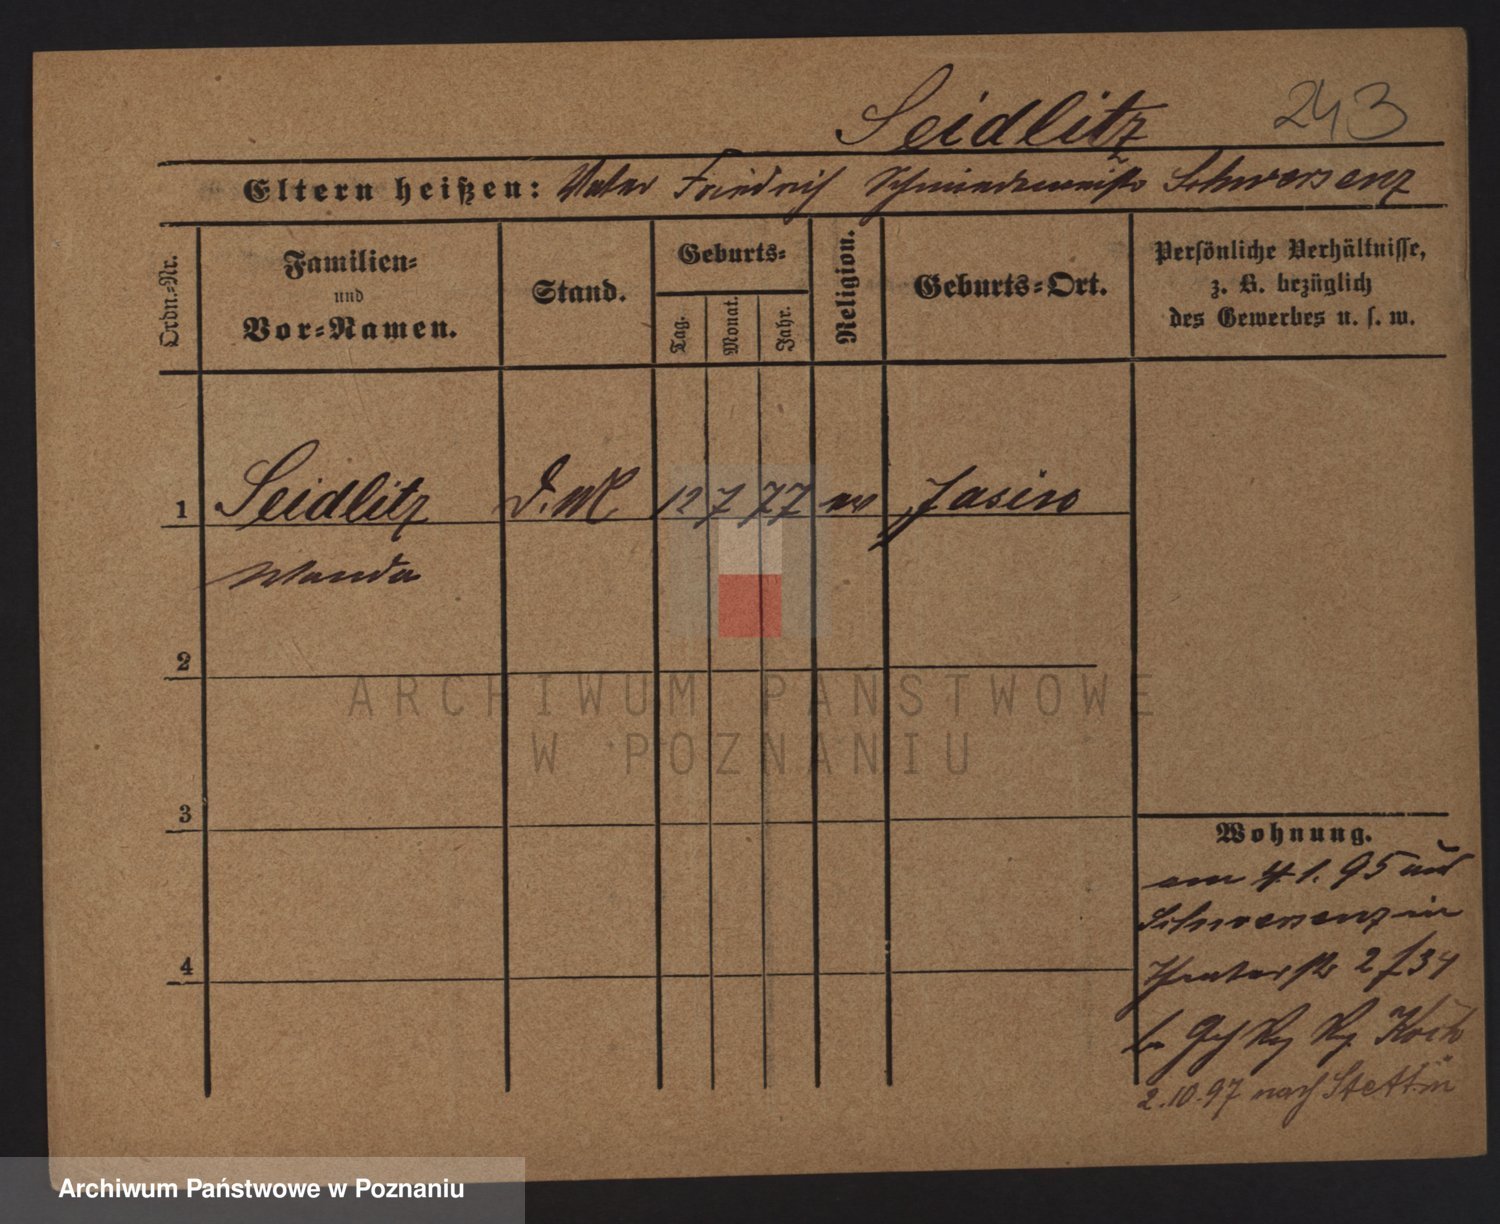 Seidlitz 243
Eltern heißen: Vater Friedrich Schmiedemeister Schwersenz
Ordn.-Nr.
Familien-
und
Vor-Namen.
Stand.
Geburts-
Tag.
Monat.
Jahr.
Religion.
Geburts-Ort.
Persönliche Verhältnisse,
z. B. bezüglich
des Gewerbes u. s. w.
1 Seidlitz D. M. 12 7 77 ev Jasin
Wanda
2
ARCHIWUM PAŃSTWOWE
W POZNANIU
3
4
Wohnung.
am 4. 1. 95 aus
Schwersenz in
Theaterstr 2
b. Koch
2.10.97 nach Stettin
Archiwum Państwowe w Poznaniu